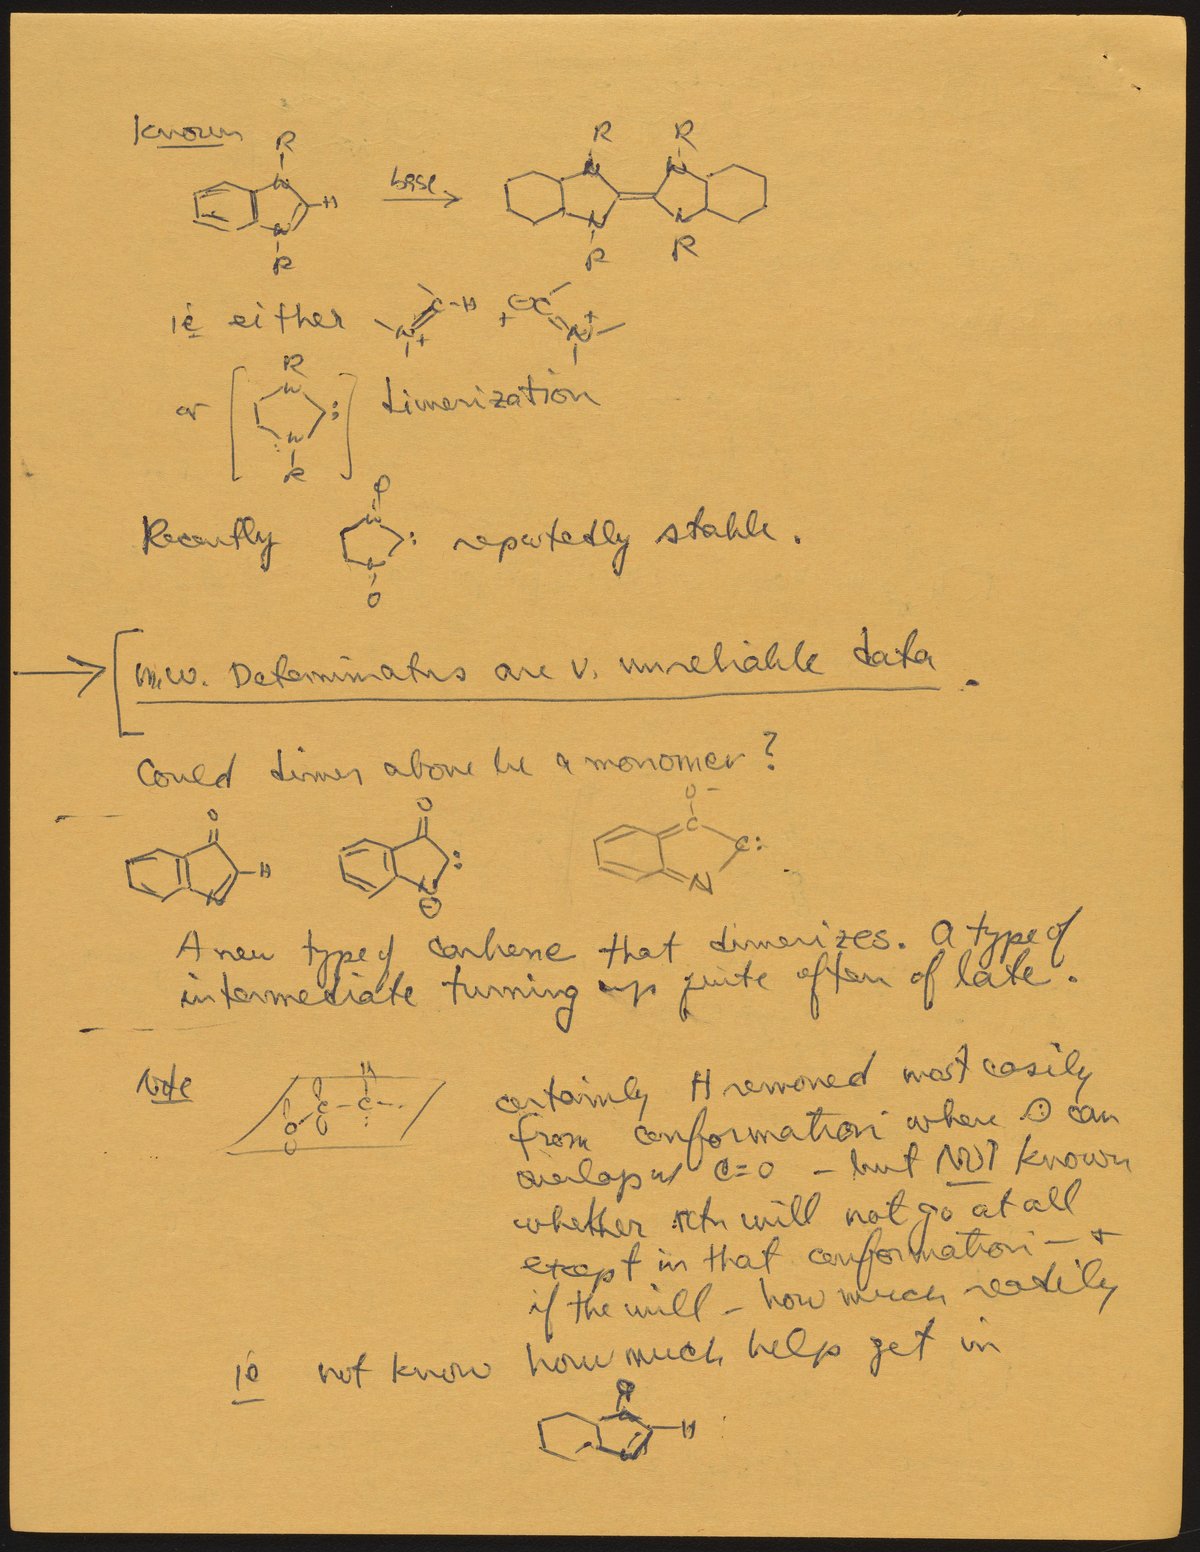 Known
R
N
H
N
R
base
R R
N N
N N
R R
ie either
C-H
N
+
+
C
N
+
or
R
N
:
N
R
dimerization
Recently
N
:
N
reputedly stable.
m.w. Determinatns are v. unreliable data.
Could dimer above be a monomer?
O
H
N
O
:
N
⊖
O-
C
C:
N
A new type of carbene that dimerizes. A type of
intermediate turning up quite often of late.
Note
H
C-C-
O
certainly H removed most easily
from conformation where ⊙ can
overlap w/ C=O - but NOT known
whether rctn will not go at all
except in that conformation - +
if the will - how much readily
ie not know how much help get in
H
N